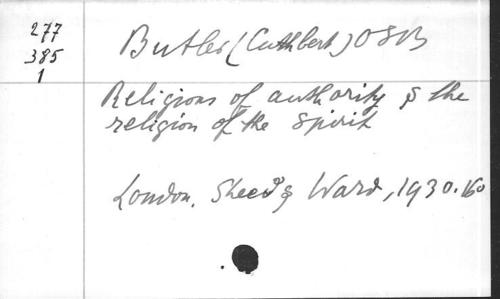 277
385
1
Butler (Cuthbert) OSB
Religions of authority & the
religion of the Spirit
London. Sheed & Ward, 1930. 16o